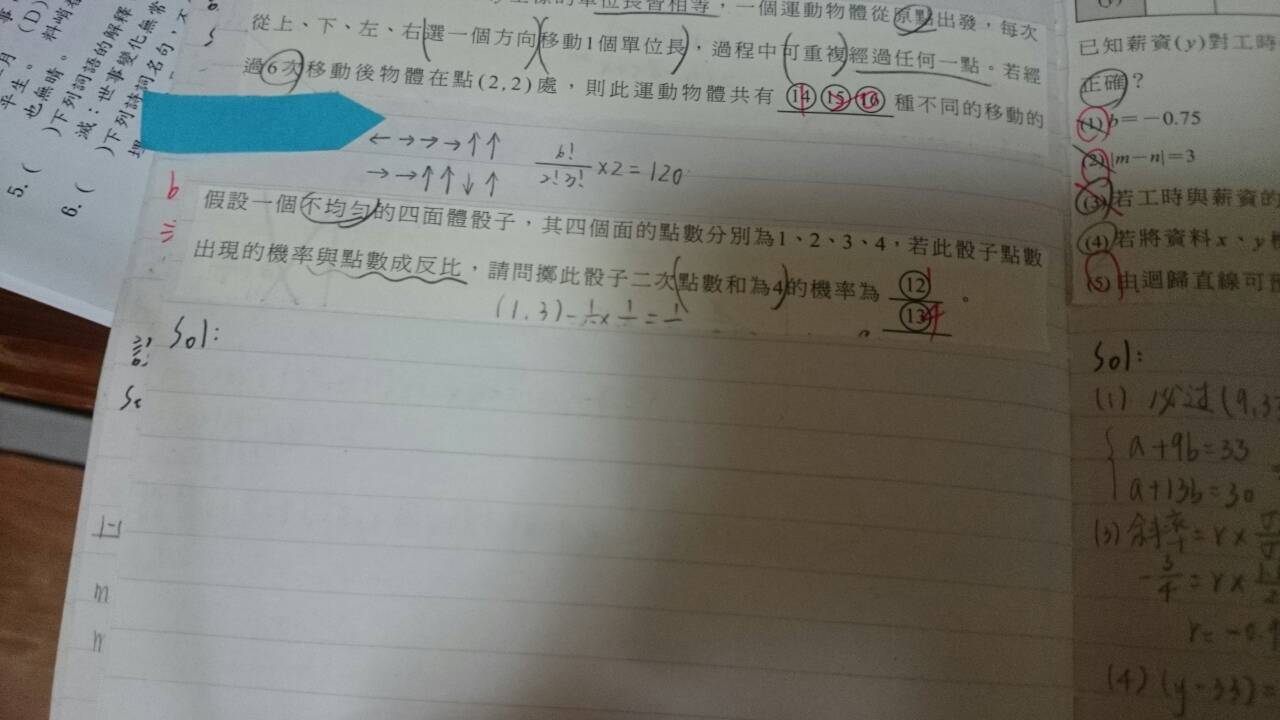 單位長皆相等，一個運動物體從原點出發，每次
從上、下、左、右選一個方向移動1個單位長，過程中可重複經過任何一點。若經
過6次移動後物體在點(2,2)處，則此運動物體共有 ⑭⑮⑯ 種不同的移動的
←→→→↑↑
→→↑↑↓↑
6!/2!3! ×2=120
6
假設一個不均勻的四面體骰子，其四個面的點數分別為1、2、3、4，若此骰子點數
出現的機率與點數成反比，請問擲此骰子二次點數和為4的機率為 ⑫/⑬ 。
1
4
(1,3)
Sol:
5. (
)下列詞語的解釋
6. (
也無晴。
滅：世事變化無常
已知薪資(y)對工時
正確？
(1) b=－0.75
(2) |m－n|=3
(3) 若工時與薪資的
(4) 若將資料x、y
(5) 由迴歸直線可
Sol:
(1) 必过(9,3
a+9b=33
a+13b=30
(3) 斜率=r×
-3/4=r×
r=-0.
(4) (y-33)=